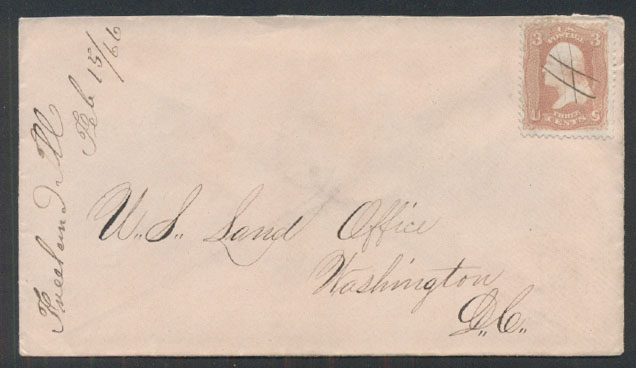 Freeland Ill
Feb 15/66
3 U.S. 3
POSTAGE
THREE
U CENTS S
U.S. Land Office
Washington
D.C.